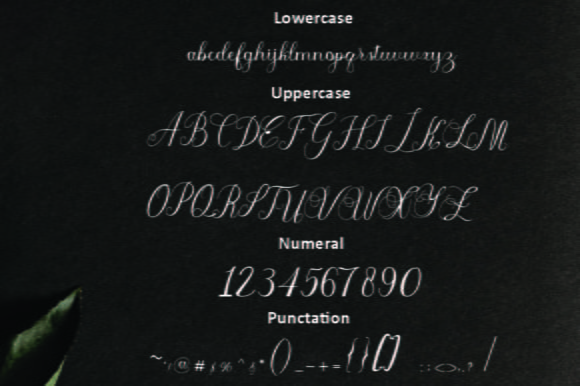 Lowercase
abcdefghijklmnopqrstuvwxyz
Uppercase
ABCDEFGHIJKLM
OPQRSTUVWXYZ
Numeral
1234567890
Punctation
@ # % ^ * () _ - + = {} []